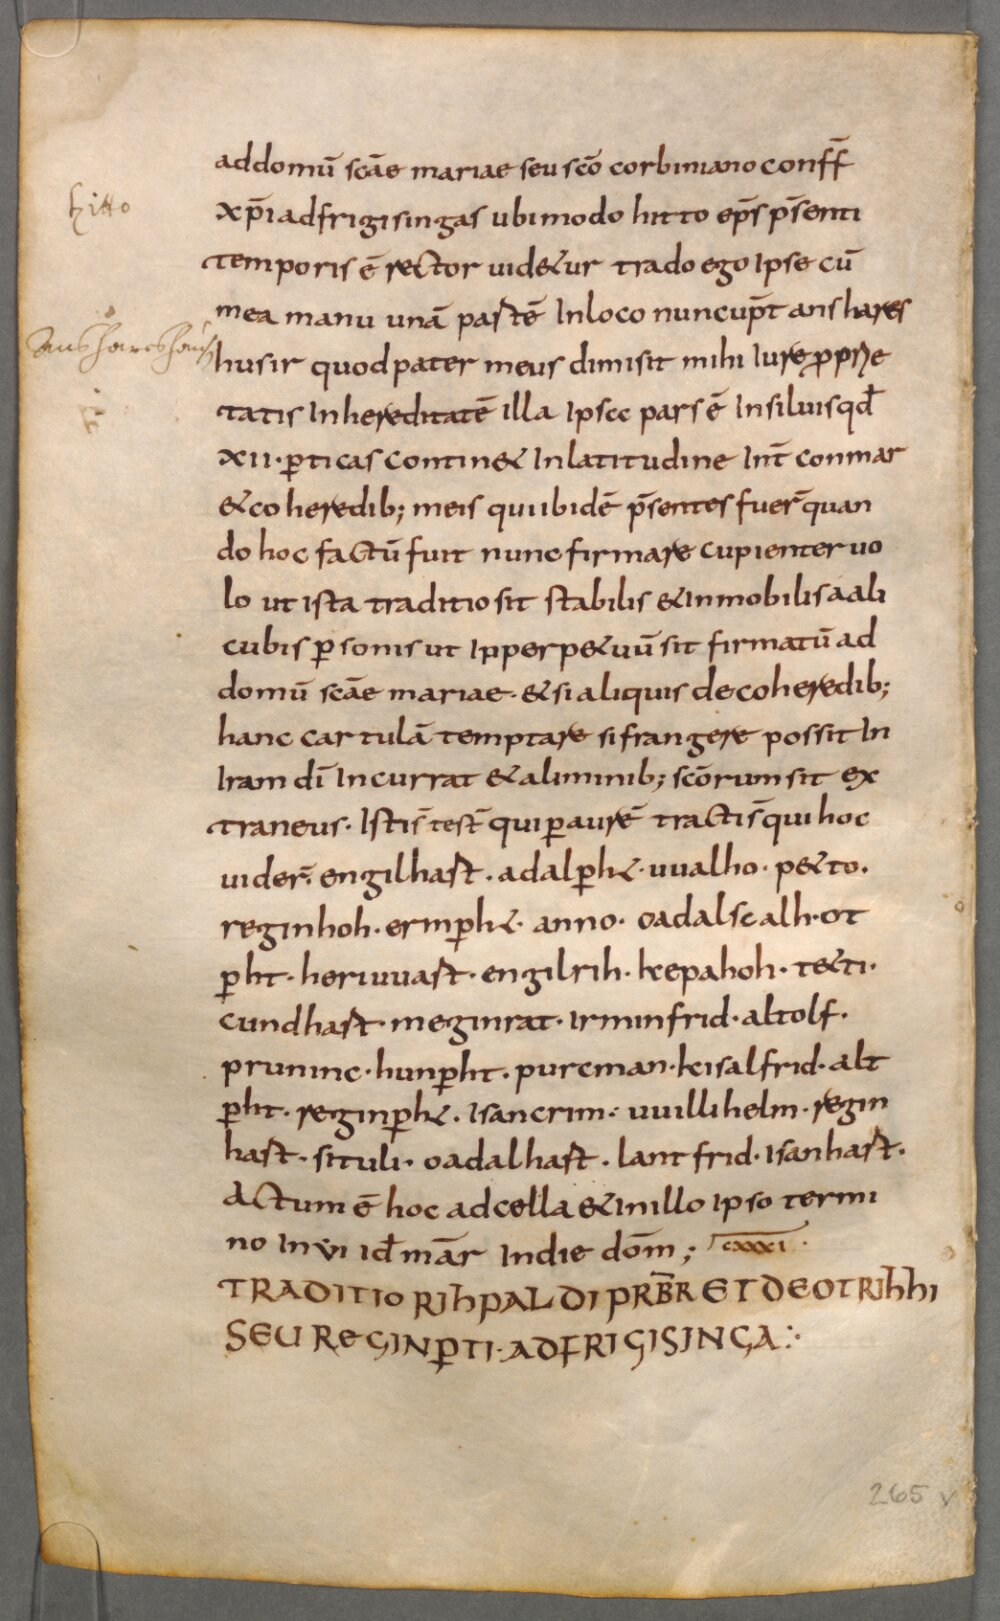 addomū scāe mariae seu scō corbiniano conf̄f
hitto
xp̄i adfrigisingas ubimodo hitto ep̄s p̄senti
temporis ē rector uid&ur trado ego Ipse cū
mea manu unā partē Inloco nuncup̄t anshares
Anshareshaus
husir quodpater meus dimisit mihi Iure propriae
tatis Inhereditatē illa Ipsee pars ē Insiluisqđ
XII·ꝑticas contin& Inlatitudine Int̄ conmar
&coheredib; meis quiibidē p̄sentes fuer̄ quan
do hoc factū fuit nunc firmare cupienter uo
lo ut ista traditio sit stabilis &inmobilis aali
cubis ꝑsonis ut Inperp&uū sit firmatū ad
domū scāe mariae· &si aliquis decoheredib;
hanc cartulā temptare sifrangere possit In
Iram dī Incurrat &aliminib; scōrum sit ex
traneus· Istis̄ test̄ qui ꝑaurē tractis̄ qui hoc
uider̄· engilhast· adalꝑh&· uualho· p&to·
reginhoh· ermꝑh&· anno· oadalscalh· ot
ꝑht· heriuuast· engilrih· kepahoh· t&ti·
cundhast· meginrat· irminfrid· altolf·
pruninc· hunꝑht· purcman· keisalfrid· alt
ꝑht· reginꝑh&· Isancrim· uuillihelm· regin
hast· situli· oadalhast· lantfrid· Isanhast·
Actum ē hoc adcella &inillo Ipso termi
no In VI Iđ mār Indie dom̄; CXXXI·
TRADITIO RIHPALDI PRB̄R ET DEOTRIHHI
SEU REGINꝑTI· ADFRIGISINGA:·
265 v